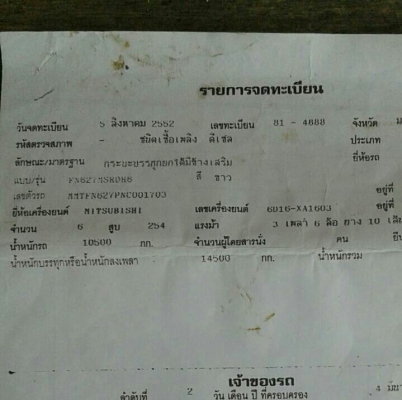 รายการจดทะเบียน
วันจดทะเบียน 5 สิงหาคม 2552 เลขทะเบียน 81 - 4888 จังหวัด
รหัสตรวจสภาพ - ชนิดเชื้อเพลิง ดีเซล ประเภท
ลักษณะ/มาตรฐาน กระบะบรรทุกยกได้มีข้างเสริม ยี่ห้อรถ
แบบ/รุ่น สี ขาว
เลขตัวรถ อยู่ที่
ยี่ห้อเครื่องยนต์ MITSUBISHI เลขเครื่องยนต์ 6D16-XA1603 อยู่ที่
จำนวน 6 สูบ 254 แรงม้า 3 เพลา 6 ล้อ ยาง 10
น้ำหนักรถ 10500 กก. จำนวนผู้โดยสารนั่ง คน
น้ำหนักบรรทุกหรือน้ำหนักลงเพลา 14500 กก. น้ำหนักรวม
เจ้าของรถ
ลำดับที่ 2 วัน เดือน ปี ที่ครอบครอง 4